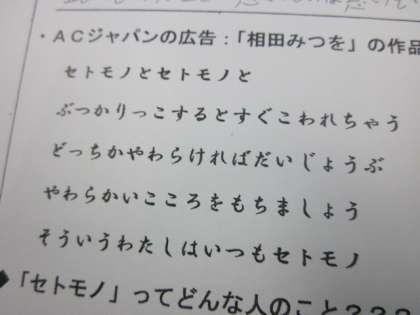 ・ACジャパンの広告：「相田みつを」の作品
セトモノとセトモノと
ぶつかりっこするとすぐこわれちゃう
どっちかやわらければだいじょうぶ
やわらかいこころをもちましょう
そういうわたしはいつもセトモノ
◆「セトモノ」ってどんな人のこと？？？